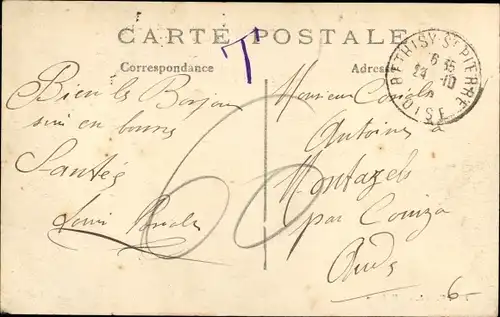 CARTE POSTALE
T
Correspondance
Adresse
BÉTHISY ST PIERRE
6 35
24 - 10
OISE
Bien le Bonjour
suis en bonne
Santée
Louis
Monsieur
Antoine à
Montazels
par Couiza
Aude
60
6